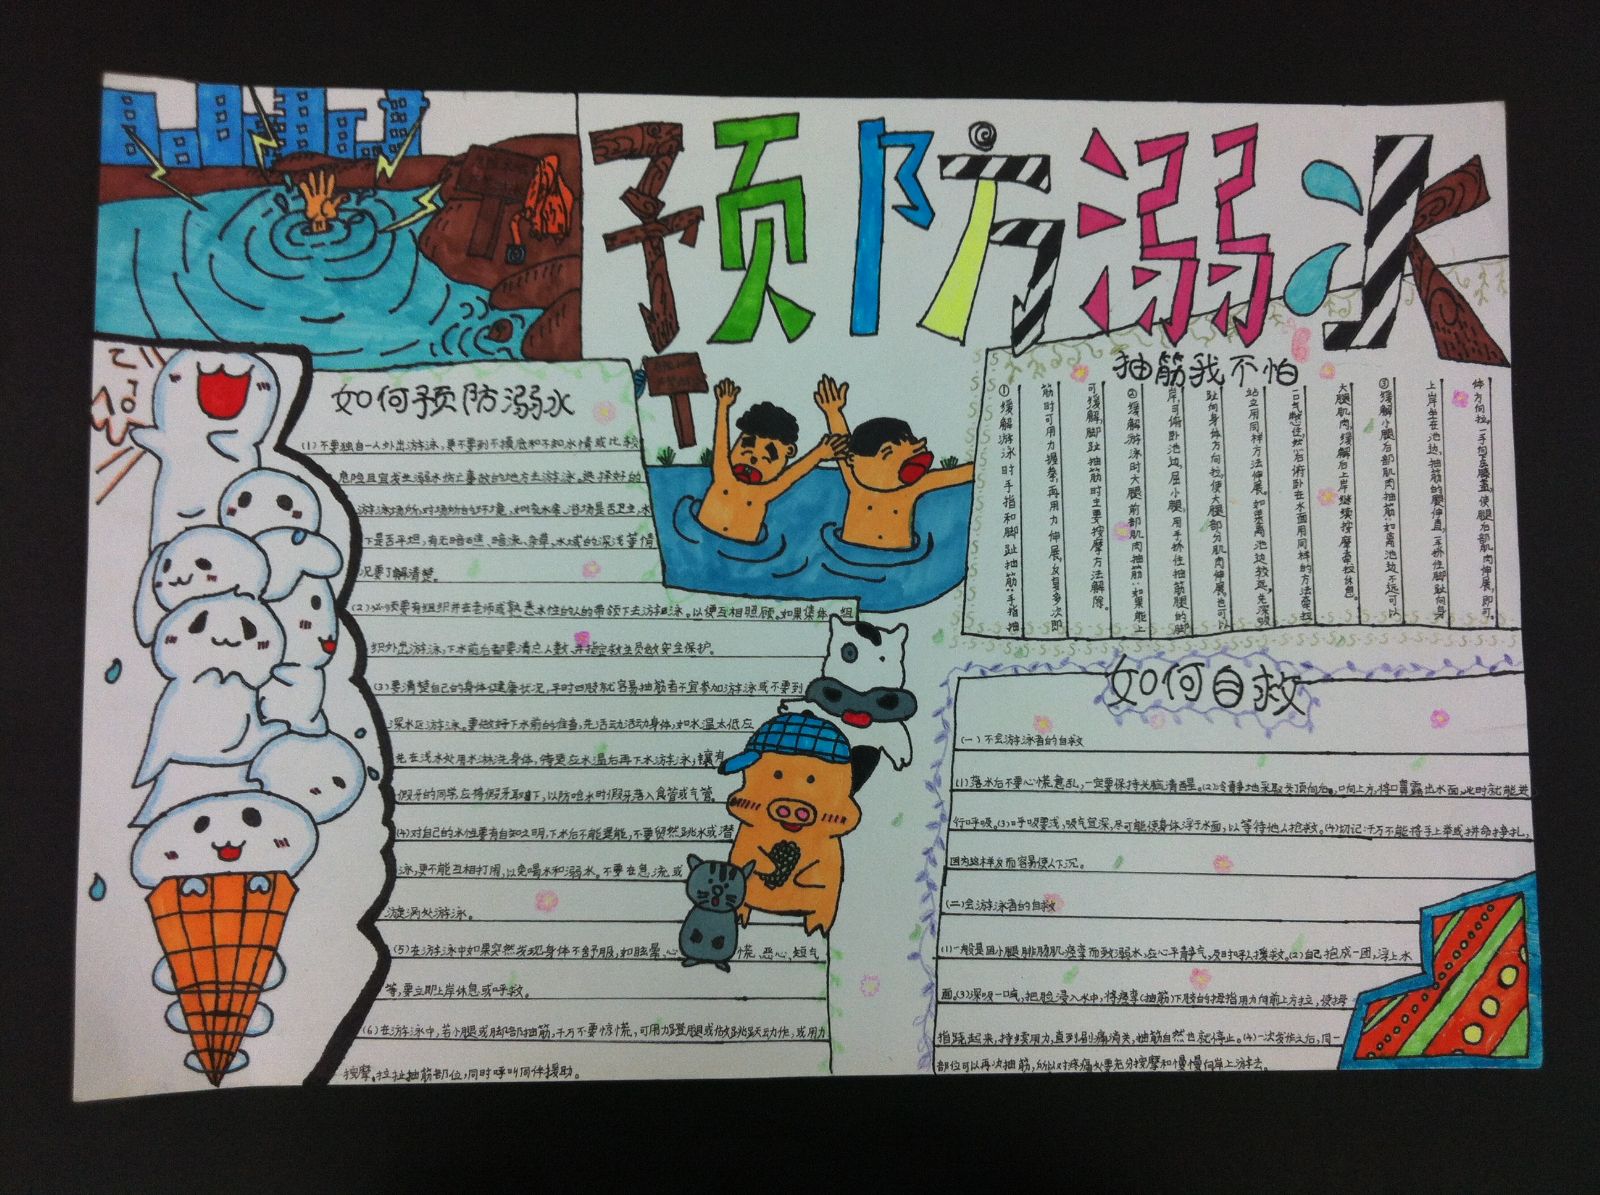 预防溺水
如何预防溺水
(1)不要独自一人外出游泳,更不要到不摸底和不知水情或比较
危险且宜发生溺水伤亡事故的地方去游泳。选择好的
游泳场所,对场所的环境,如
水库、浴场是否卫生,水
下是否平坦,有无暗礁、暗
、杂草、水域的深浅等情
况要了解清楚。
(2)必须要有组织并在老师或熟悉水性的人的带领下去游泳。以便互相照顾。如果集体 组
织外出游泳,下水前后都要清点人数,并指定救生员做安全保护。
(3)要清楚自己的身体健康状况,平时四肢就容易抽筋者不宜参加游泳或不要到
深水区游泳。要做好下水前的准备,先活动活动身体,如水温太低应
先在浅水处用水淋洗身体,待适应水温后再下水游泳;镶有
假牙的同学,应将假牙取下,以防呛水时假牙落入食管或气管。
(4)对自己的水性要有自知之明,下水后不能逞能,不要贸然跳水或潜
泳,更不能互相打闹,以免喝水和溺水。不要在急流或
漩涡处游泳。
(5)在游泳中如果突然发现身体不舒服,如眩晕、心 慌、恶心、短气
等,要立即上岸休息或呼救。
(6)在游泳中,若小腿或脚部抽筋,千万不要惊慌,可用力蹬腿或做跳跃动作,或用力
按摩、拉扯抽筋部位,同时呼叫同伴援助。
抽筋我不怕
①缓解游泳时手指和脚趾抽筋:手指抽
筋时可用力握拳,再用力伸展,反复多次即
可缓解,脚趾抽筋时主要按摩方法解除。
②缓解游泳时大腿前部肌肉抽筋:如果能上
岸,可俯卧池边,屈小腿,用手扳住抽筋腿的脚
趾向身体方向拉,使大腿部分肌肉伸展。也可以
站立用同样方法伸展。如果离池边较远,先深吸
一口气憋住,然后俯卧在水面用同样的方法牵拉
大腿肌肉,缓解后上岸继续按摩牵拉休息。
③缓解小腿后部肌肉抽筋:如离池边不远可以
上岸坐在池边,抽筋的腿伸直,一手扳住脚趾向身
体方向拉,一手向下压膝盖,使腿后部肌肉伸展,即可。
如何自救
(一)不会游泳者的自救
(1)落水后不要心慌意乱,一定要保持头脑清醒。(2)冷静地采取头顶向后,口向上方,将口鼻露出水面,此时就能进
行呼吸。(3)呼吸要浅,吸气宜深,尽可能使身体浮于水面,以等待他人抢救。(4)切记:千万不能将手上举或拼命挣扎,
因为这样反而容易使人下沉。
(二)会游泳者的自救
(1)一般是因小腿腓肠肌痉挛而致溺水,应心平静气,及时呼人援救。(2)自己抱成一团,浮上水
面。(3)深吸一口气,把脸浸入水中,将痉挛(抽筋)下肢的拇指用力向前上方拉,使拇
指跷起来,持续用力,直到剧痛消失,抽筋自然也就停止。(4)一次发作之后,同一
部位可以再次抽筋,所以对疼痛处要充分按摩和慢慢向岸上游去。